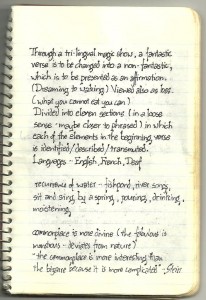 Through a tri-lingual magic show, a fantastic
verse is to be changed into a non-fantastic,
which is to be presented as an affirmation.
(Dreaming to waking) Viewed also as
(what you cannot eat you can)
Divided into eleven sections (in a loose
sense - maybe closer to phrases) in which
each of the elements in the beginning verse
is identified/described/transmuted.
Languages - English, French, Deaf
recurrence of water - fishpond, river song,
sit and sing by a spring, pouring, drinking,
moistening,
commonplace is more divine (the fabulous is
wondrous - deviates from nature)
"the commonplace is more interesting than
the bizarre because it is more complicated" - Stein